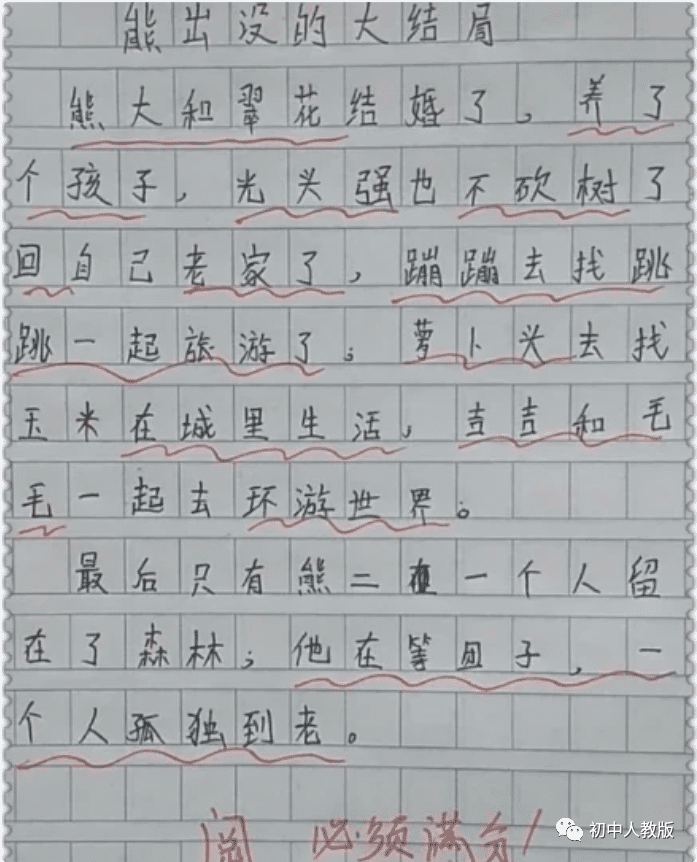 熊出没的大结局
熊大和翠花结婚了，养了
个孩子，光头强也不砍树了
回自己老家了，蹦蹦去找跳
跳一起旅游了；萝卜头去找
玉米在城里生活，吉吉和毛
毛一起去环游世界。
最后只有熊二在一个人留
在了森林；他在等团子，一
个人孤独到老。
阅 必须满分！
初中人教版